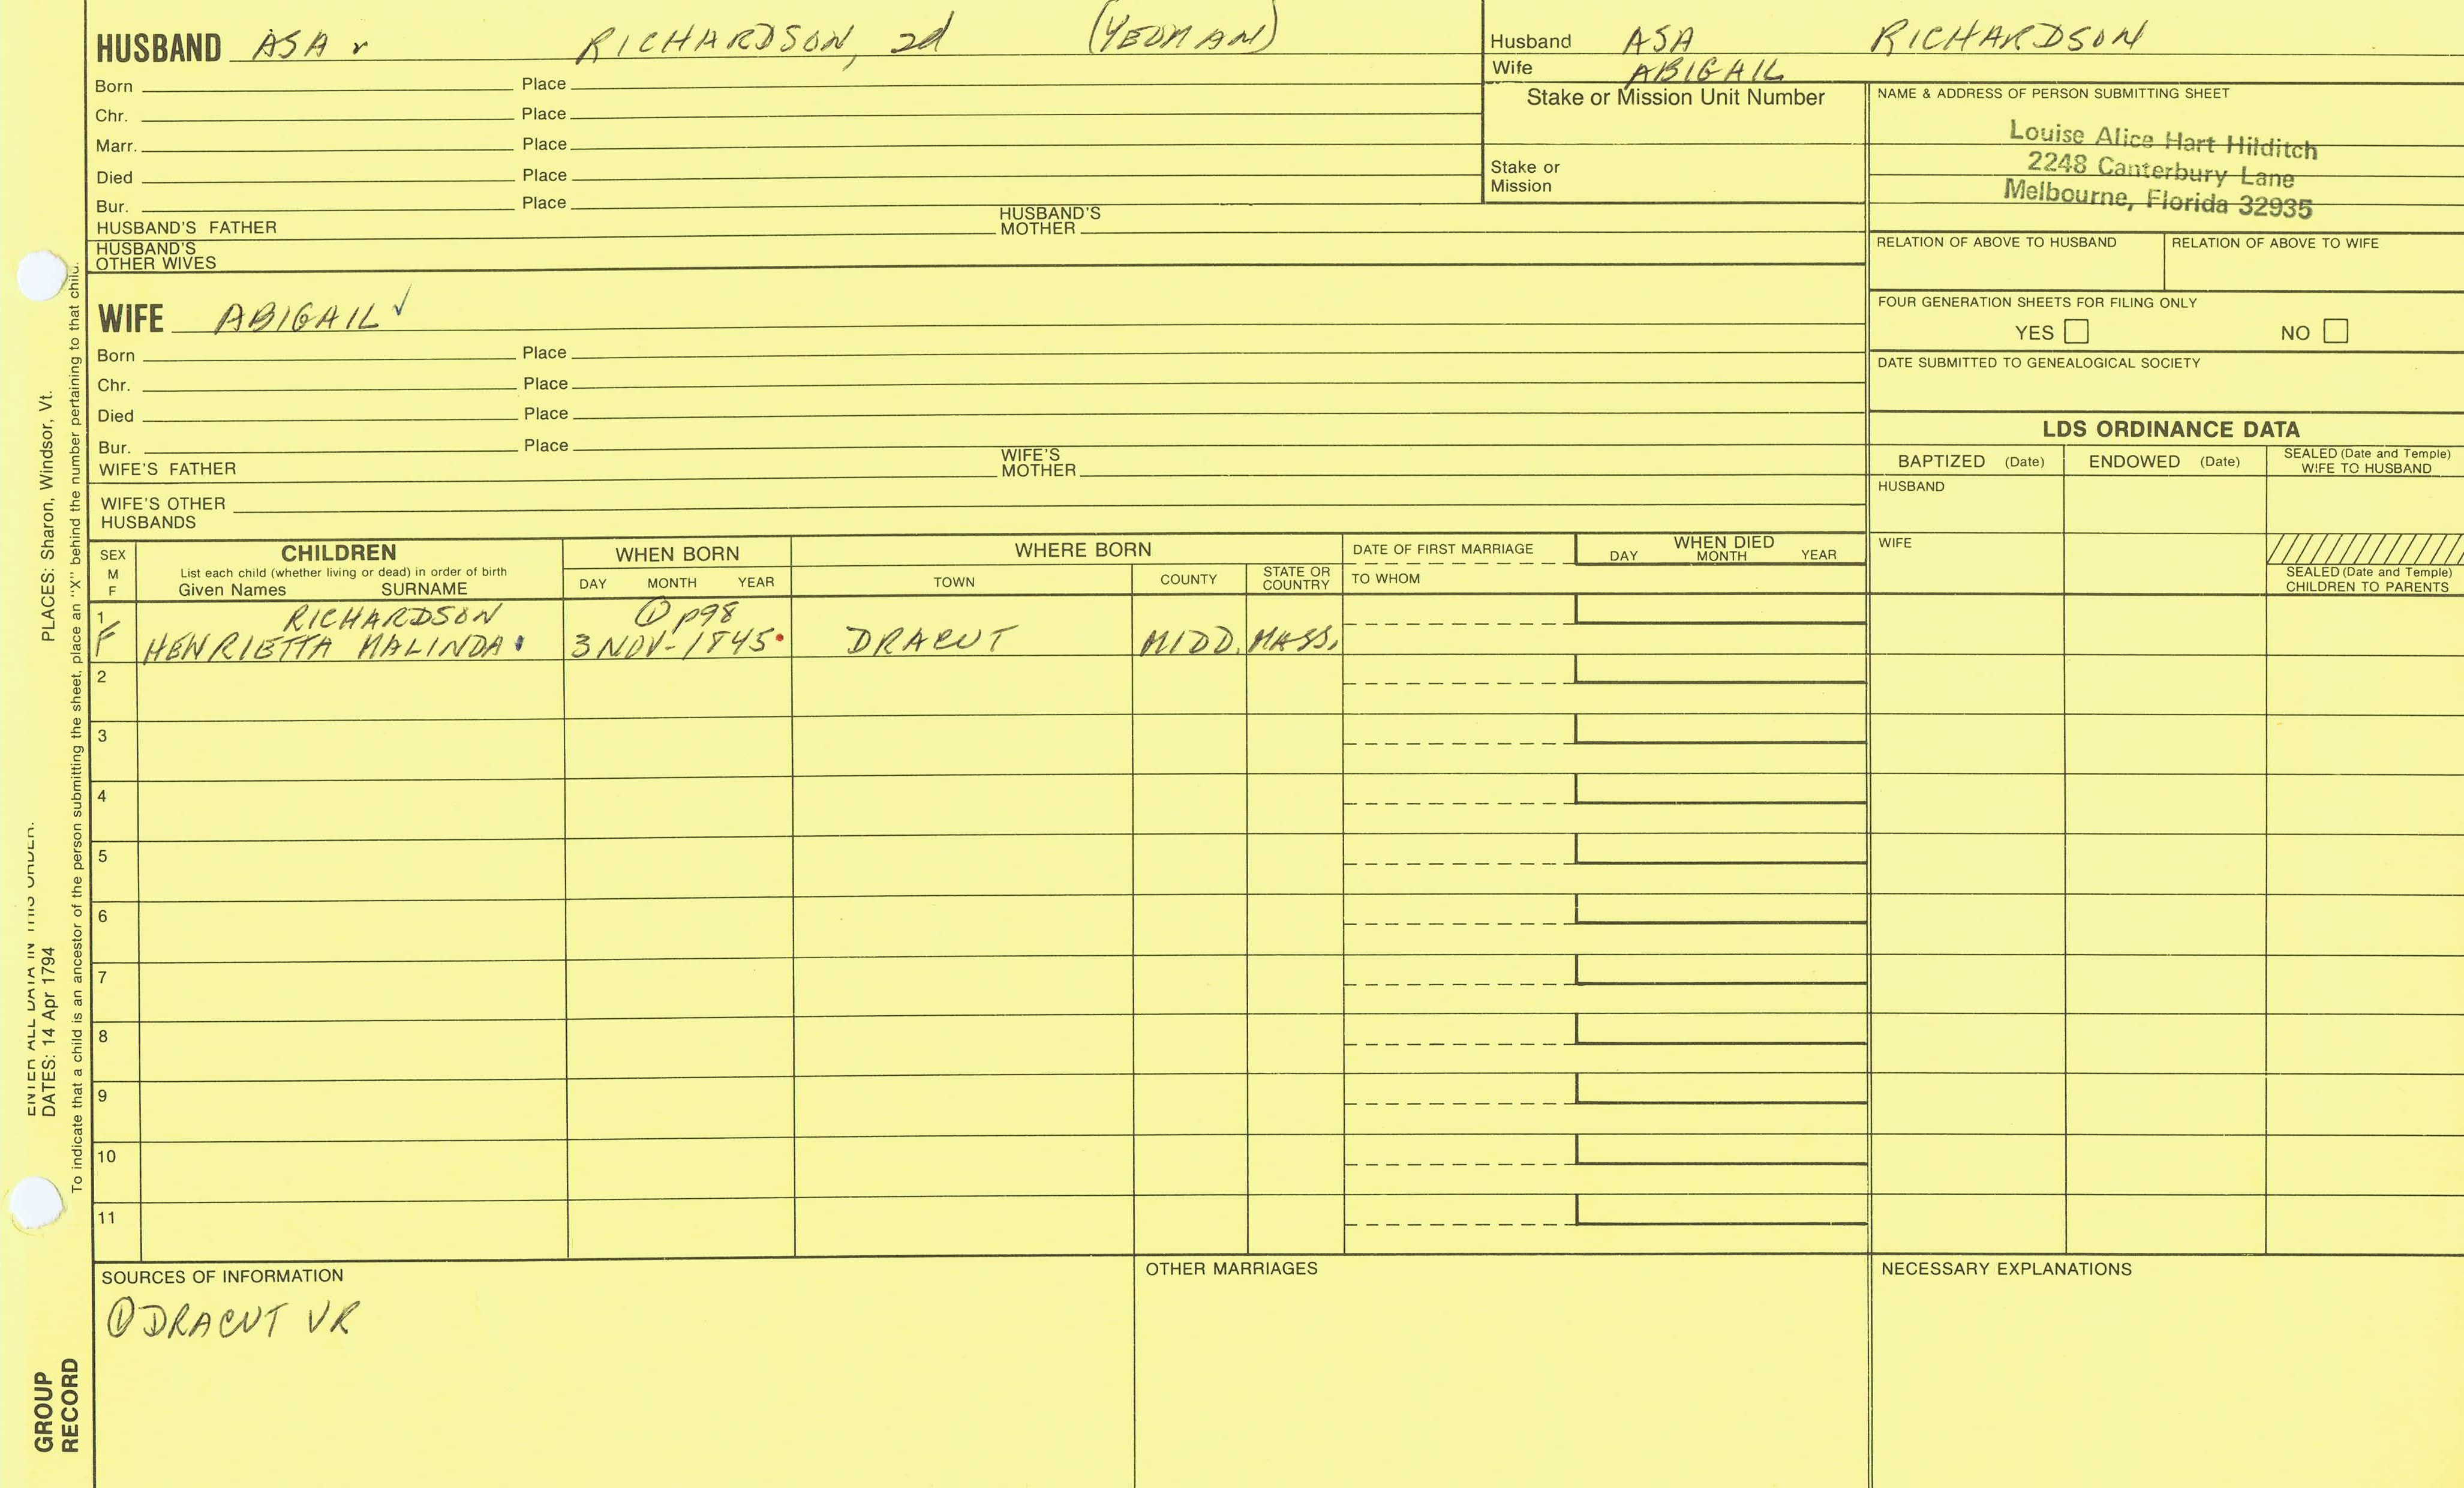 HUSBAND ASA RICHARDSON, 2d (YEOMAN)
Born Place
Chr. Place
Marr. Place
Died Place
Bur. Place
HUSBAND'S FATHER HUSBAND'S MOTHER
HUSBAND'S OTHER WIVES
WIFE ABIGAIL ✓
Born Place
Chr. Place
Died Place
Bur. Place
WIFE'S FATHER WIFE'S MOTHER
WIFE'S OTHER HUSBANDS
Husband ASA RICHARDSON
Wife ABIGAIL
Stake or Mission Unit Number
Stake or Mission
NAME & ADDRESS OF PERSON SUBMITTING SHEET
Louise Alice Hart Hilditch
2248 Canterbury Lane
Melbourne, Florida 32935
RELATION OF ABOVE TO HUSBAND RELATION OF ABOVE TO WIFE
FOUR GENERATION SHEETS FOR FILING ONLY
YES NO
DATE SUBMITTED TO GENEALOGICAL SOCIETY
LDS ORDINANCE DATA
BAPTIZED (Date) ENDOWED (Date) SEALED (Date and Temple) WIFE TO HUSBAND
HUSBAND
WIFE
SEALED (Date and Temple) CHILDREN TO PARENTS
SEX M F
CHILDREN
List each child (whether living or dead) in order of birth
Given Names SURNAME
WHEN BORN
DAY MONTH YEAR
WHERE BORN
TOWN COUNTY STATE OR COUNTRY
DATE OF FIRST MARRIAGE
TO WHOM
WHEN DIED
DAY MONTH YEAR
1 RICHARDSON ① p98
F HENRIETTA MALINDA 3 NOV-1845 DRACUT MIDD. MASS.
2
3
4
5
6
7
8
9
10
11
SOURCES OF INFORMATION
① DRACUT VR
OTHER MARRIAGES
NECESSARY EXPLANATIONS
ENTER ALL DATA IN THIS ORDER:
DATES: 14 Apr 1794 PLACES: Sharon, Windsor, Vt.
To indicate that a child is an ancestor of the person submitting the sheet, place an "X" behind the number pertaining to that child.
GROUP
RECORD